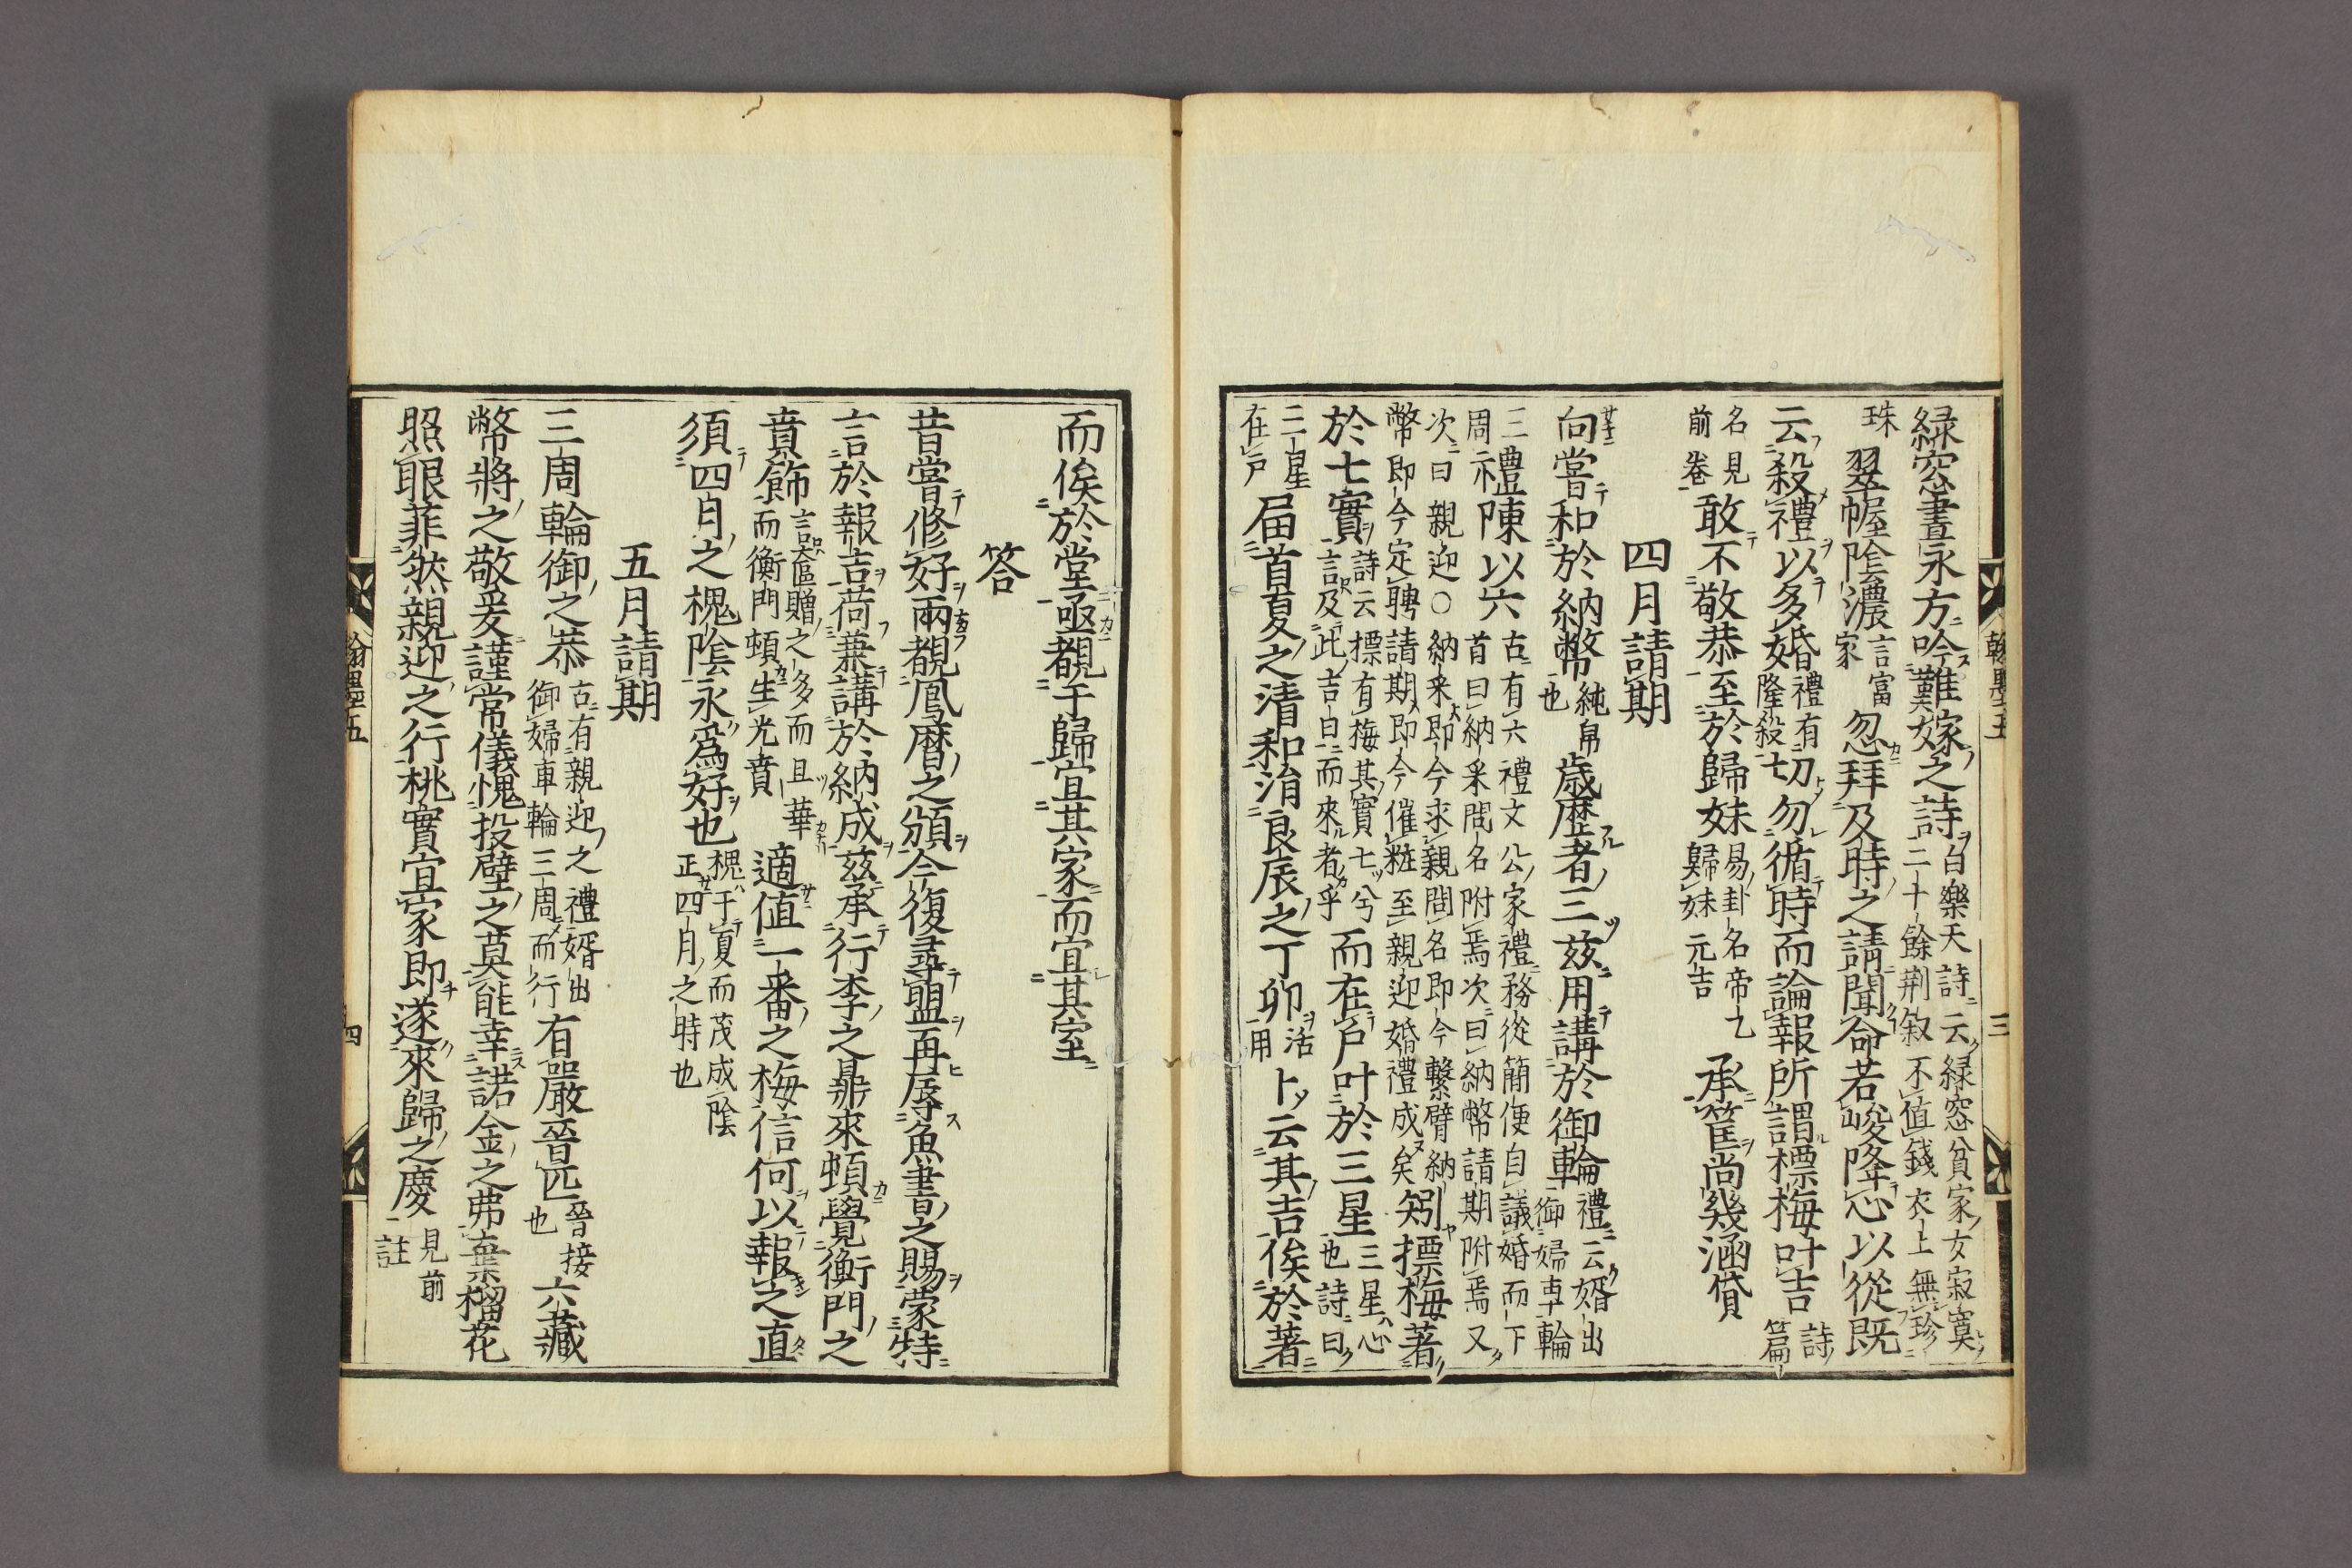 綠窓晝永方吟難嫁之詩白樂天詩云綠窓貧家女寂寞二十餘荆釵不値錢衣上無珍
珠翠幄陰濃言富家忽拜及時之請聞命若峻降心以從既
云殺禮以多婚禮有隆殺切勿循時而論報所謂摽梅叶吉詩篇
名見前卷敢不敬恭至於歸妹易卦名帝乙歸妹元吉承筐尚幾涵貸
四月請期
向嘗和於納幣純帛也歲歷者三茲用講於御輪禮云婿出御婦車輪
三周禮陳以六古有六禮文公家禮務從簡便自議婚而下首曰納采問名附焉次曰納幣請期附焉又
次曰親迎○納采即今求親問名即今繫臂納幣即今定聘請期即今催粧至親迎婚禮成矣矧摽梅著
於七實詩云摽有梅其實七兮言及此吉日而來者乎而在戶叶於三星三星心也詩曰
三星在戶届首夏之清和涓良辰之丁卯活用卜云其吉俟於著
而俟於堂亟覩于歸宜其家而宜其室
答
昔嘗修好兩覩鳳曆之頒今復尋盟再辱魚書之賜蒙特
言於報吉荷兼講於納成茲承行李之鼎來頓覺衡門之
賁飾言奩贈之多而且華而衡門頓生光賁適値一番之梅信何以報之直
須四月之槐陰永爲好也槐于夏而茂成陰正四月之時也
五月請期
三周輪御之恭古有親迎之禮婿出御婦車輪三周而行有嚴晉匹晉接也六藏
幣將之敬爰謹常儀愧投璧之莫能幸諾金之弗棄榴花
照眼菲然親迎之行桃實宜家即遂來歸之慶見前註